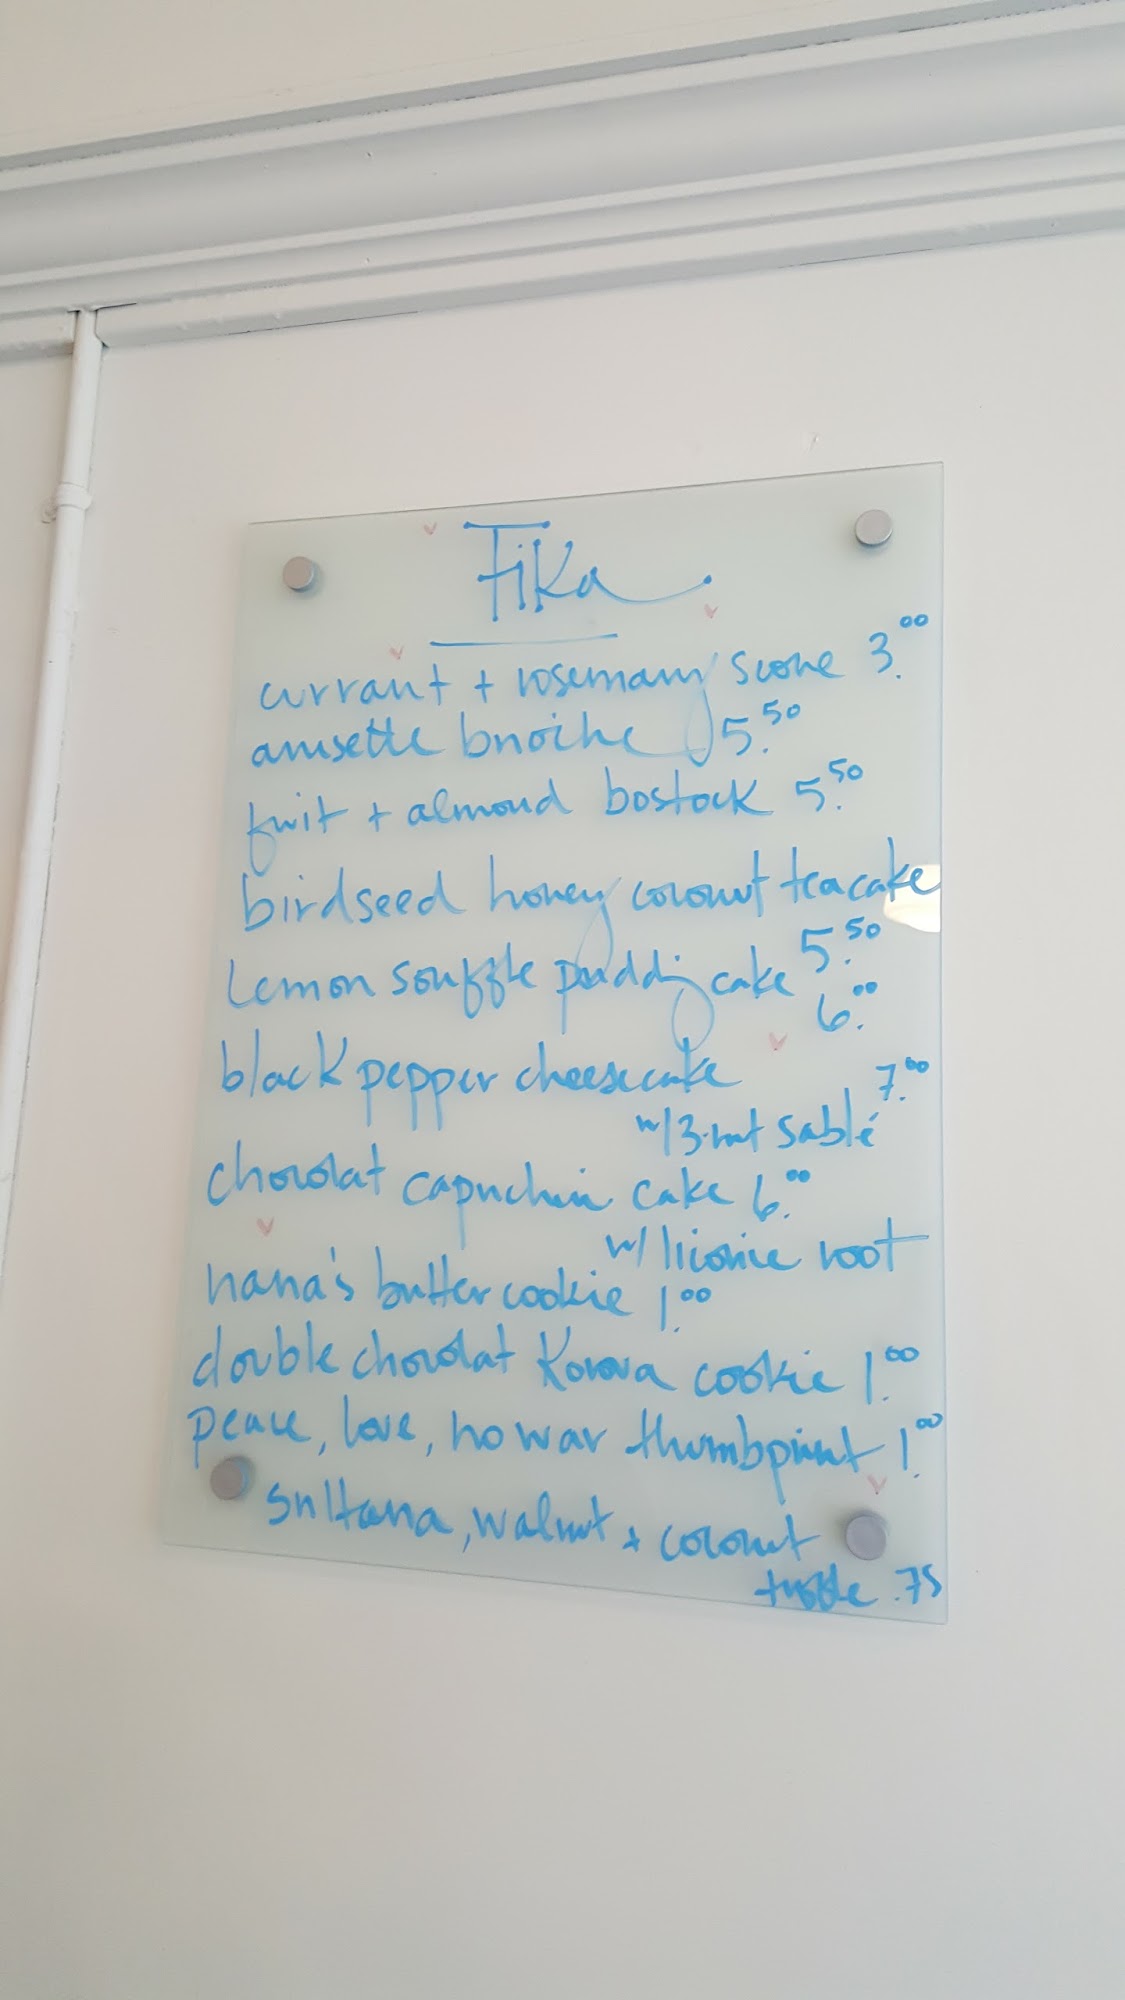 Fika
currant + rosemary scone 3.00
anisette brioche 5.50
fruit + almond bostock 5.50
birdseed honey coconut teacake
5.50
lemon souffle pudding cake
6.00
black pepper cheesecake
w/ 3-nut sablé 7.00
chocolat capuchin cake 6.00
w/ licorice root
nana's butter cookie 1.00
double chocolat Korova cookie 1.00
peace, love, no war thumbprint 1.00
sultana, walnut + coconut
.75